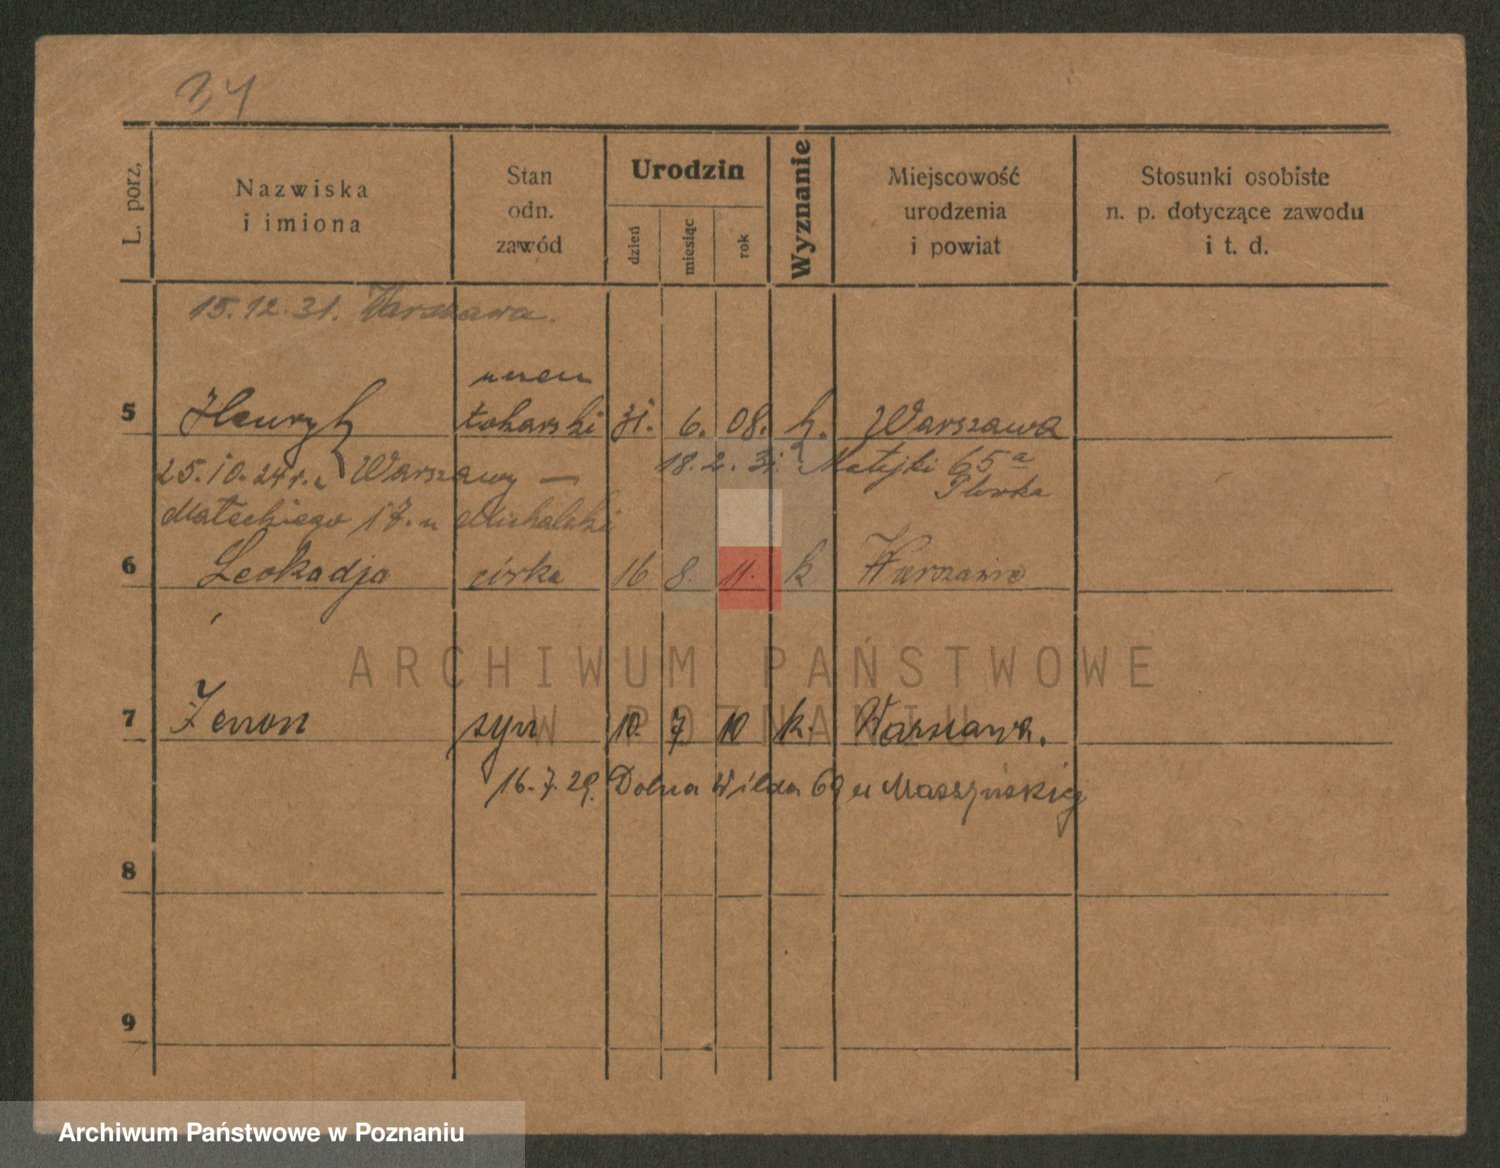 34
L. porz.
Nazwiska
i imiona
Stan
odn.
zawód
Urodzin
dzień
miesiąc
rok
Wyznanie
Miejscowość
urodzenia
i powiat
Stosunki osobiste
n. p. dotyczące zawodu
i t. d.
15.12.31. Warszawa.
uczeń
5 Henryk tokarski 31. 6. 08. k. Warszawa
25.10.24 r. z Warszawy — 18.2.31. Matejki 65a
Małeckiego 17. u Michalski
6 Leokadja córka 16 8. 11. k Warszawie
7 Zenon syn 10. 7 10 k. Warszawa.
16.7.29. Dolna Wilda 69 u Maszyńskiej
8
9
ARCHIWUM PAŃSTWOWE
W POZNANIU
Archiwum Państwowe w Poznaniu